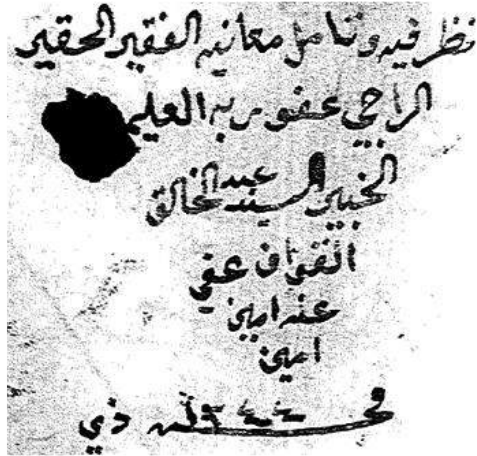 نظر فيه وتأمل معانيه الفقير الحقير
الراجي عفو ربه العليم
الخبير السيد عبد الخالق
عفي
عنه امين
امين
في سنة ذي